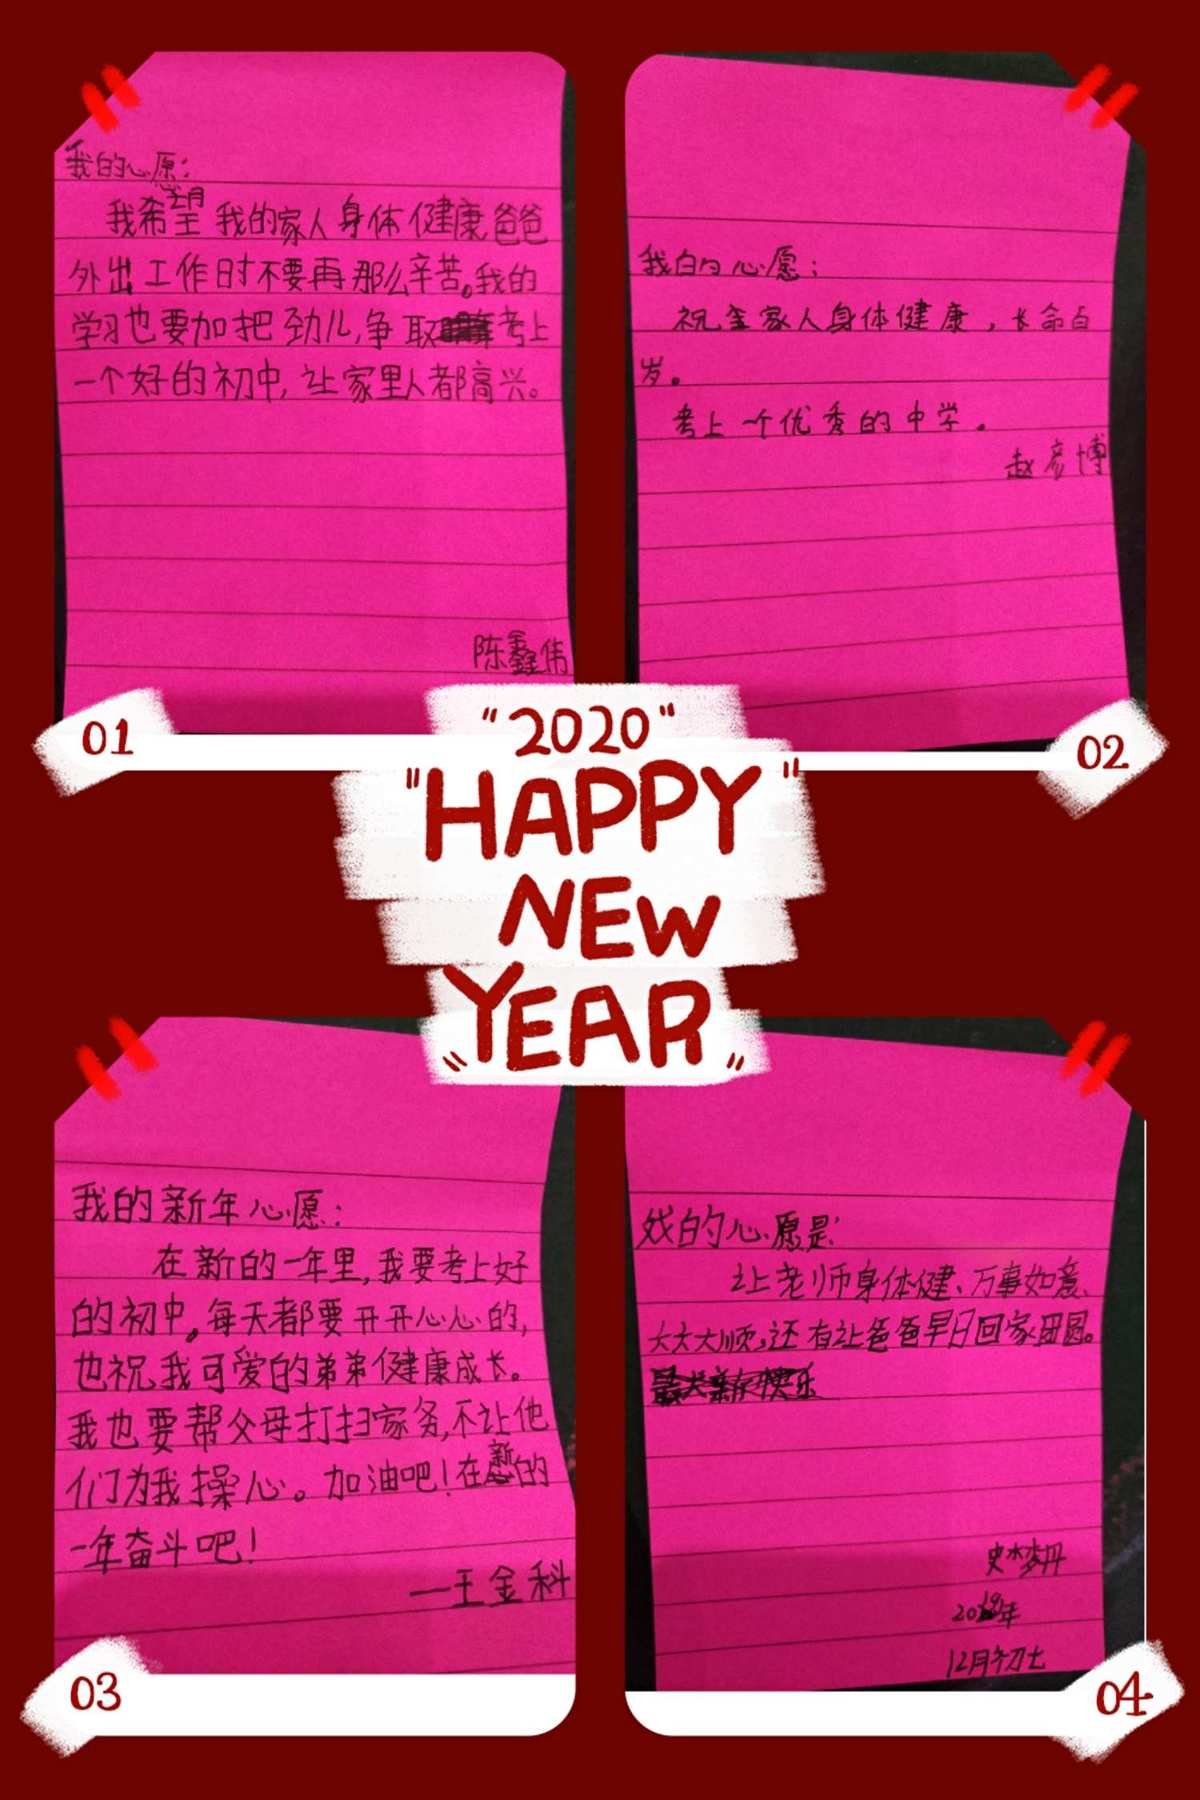 我的心愿：
我希望我的家人身体健康爸爸
外出工作时不要再那么辛苦。我的
学习也要加把劲儿，争取考上
一个好的初中，让家里人都高兴。
陈鑫伟
01
我的心愿：
祝全家人身体健康，长命百
岁。
考上一个优秀的中学。
赵彦博
02
"2020"
"HAPPY"
NEW
"YEAR"
我的新年心愿：
在新的一年里，我要考上好
的初中。每天都要开开心心的，
也祝我可爱的弟弟健康成长。
我也要帮父母打扫家务，不让他
们为我操心。加油吧！在新的
一年奋斗吧！
—王金科
03
我的心愿是：
让老师身体健、万事如意、
大大大顺，还有让爸爸早日回家团圆。
史梦丹
2019年
12月初七
04